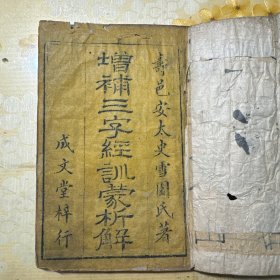 壽邑安太史雪園氏著
增補三字經訓蒙析解
成文堂梓行